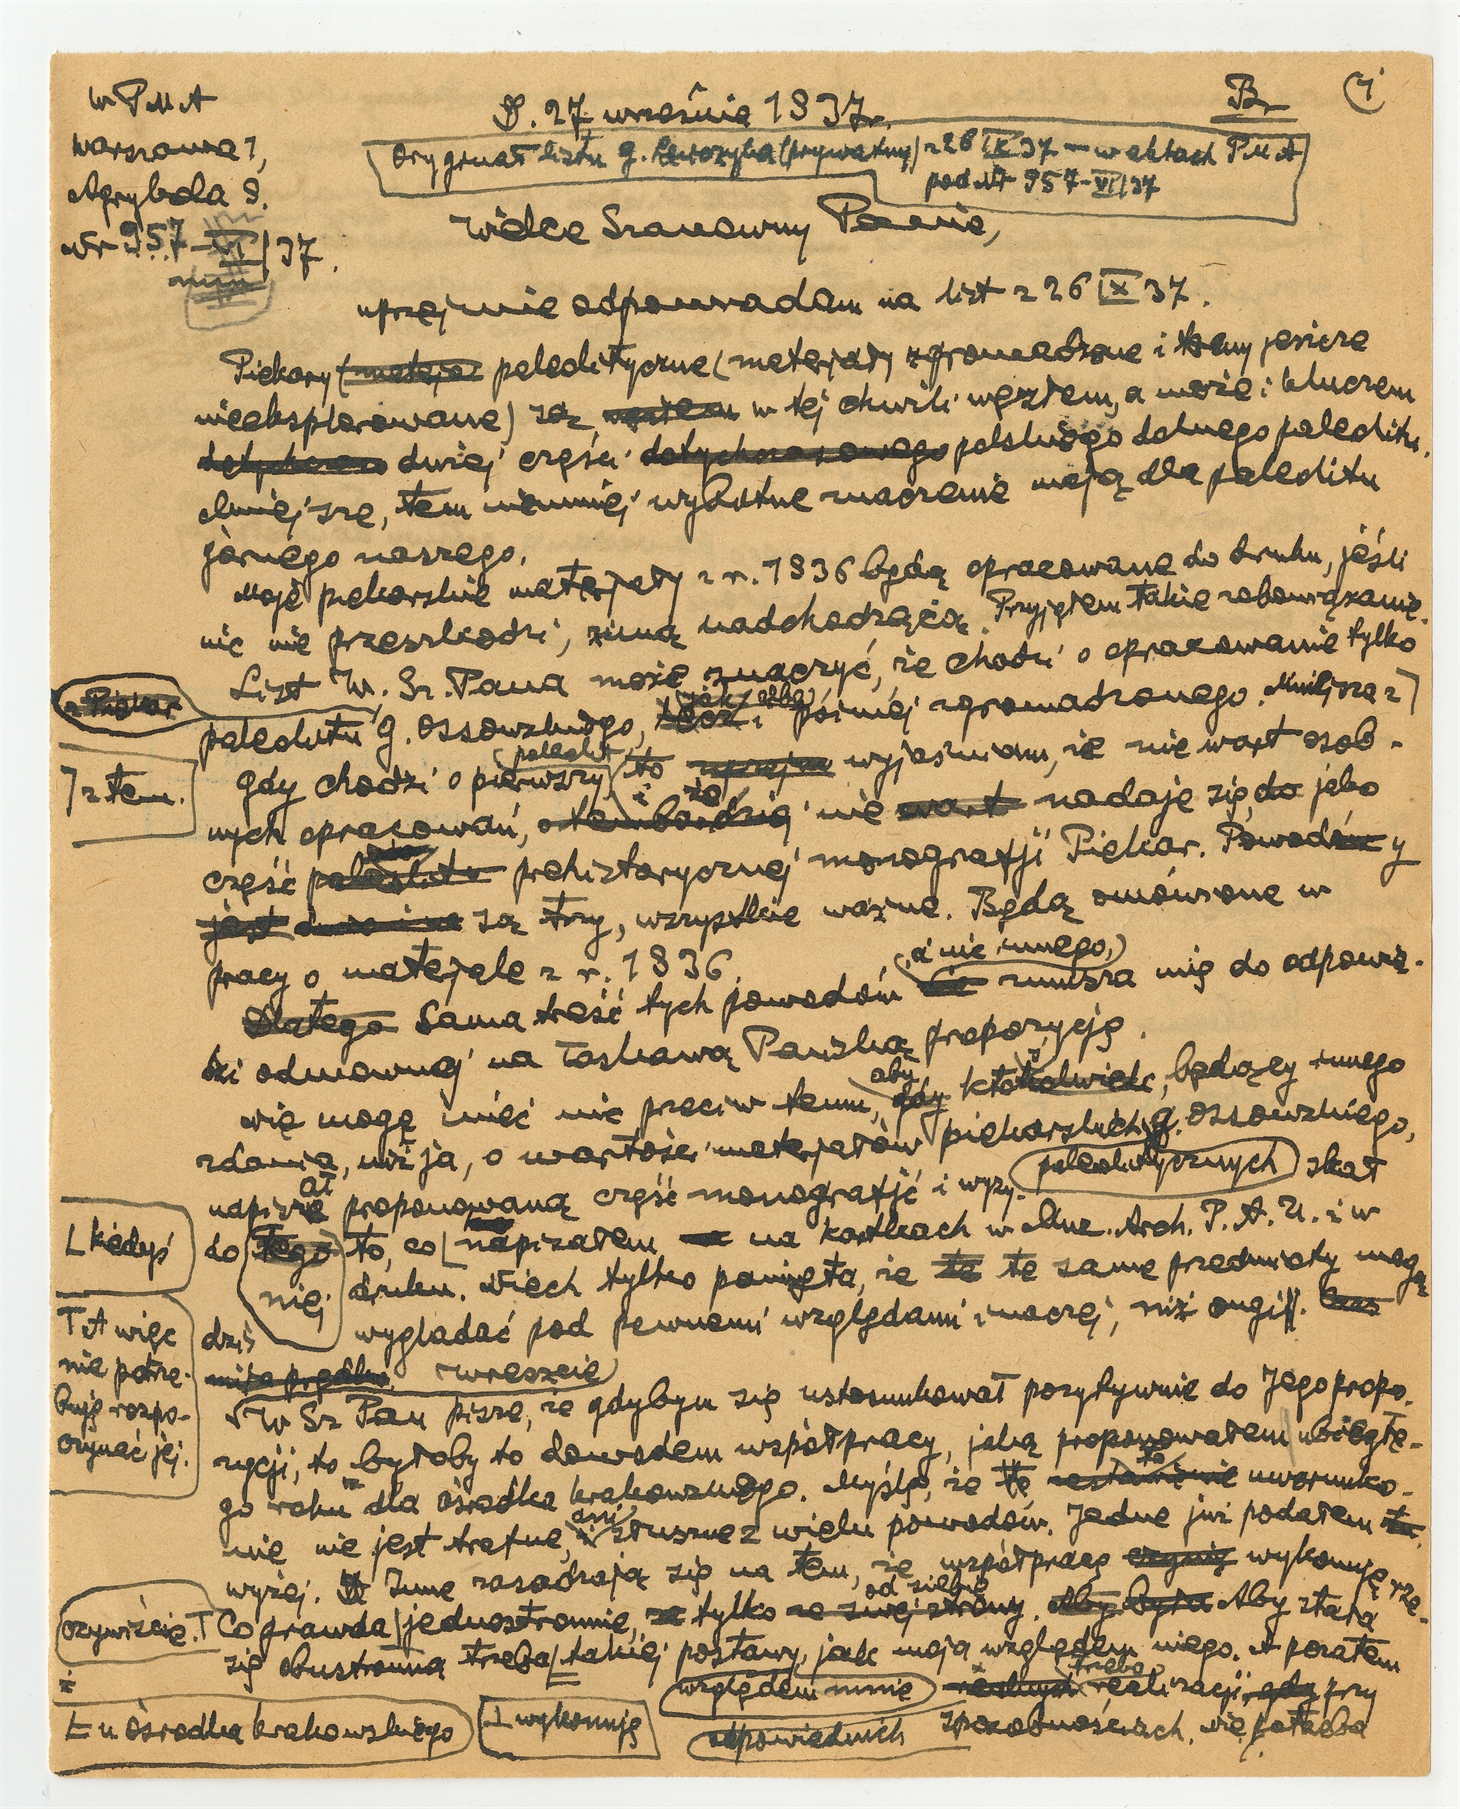 W PMA
Warszawa 1,
Agrykola 9.
Nr 957-VI/37.
D. 27 września 1937 r.
Br
1
Oryginał listu g. (prywatny) z 26 IX 37 — w aktach PMA
pod Nr 957-VI/37
Wielce Szanowny Panie,
uprzejmie odpowiadam na list z 26 IX 37.
Piekary paleolityczne (materjały zgromadzone i tamy jeszcze
nieeksploatowane) są w tej chwili węzłem, a może i kluczem
dużej części polskiego dolnego paleolitu.
Mniejsze, tem niemniej wybitne znaczenie mają dla paleolitu
górnego naszego.
Moje piekarskie materjały z r. 1936 będą opracowane do druku, jeśli
nic nie przeszkodzi, zimą nadchodzącą. Przyjąłem takie zobowiązanie.
List W. Sz. Pana może znaczyć, że chodzi o opracowanie tylko
paleolitu g. Ossowskiego, jak albo i później zgromadzonego. Mniejsza z
z tem.
Gdy chodzi o pierwszy paleolit, to wyjaśniam, że nie wart osob-
nych opracowań, i że nie nadaje się do jako
część prehistorycznej monografji Piekar. Powody
są trzy, wszystkie ważne. Będą omówione w
pracy o materjale z r. 1936.
Sama treść tych powodów, a nic innego, zmusza mię do odpowie-
dzi odmownej na łaskawą Pańską propozycję.
Nie mogę mieć nic przeciw temu, aby ktoś, będący innego
zdania, niż ja, o wartości materjałów piekarskich g. Ossowskiego,
paleolitycznych
napisał proponowaną część monografji i wyzyskał
do niej to, co
kiedyś
napisałem na kartkach w Muz. Arch. P. A. U. i w
druku. Niech tylko pamięta, że te same przedmioty mogą
dziś wyglądać pod pewnemi względami inaczej, niż ongiś.
A więc
nie potrze-
buję rozpo-
czynać jej.
Wreszcie
W Sz Pan pisze, że gdybym się ustosunkował pozytywnie do Jego propo-
zycji, to byłoby to dowodem współpracy, jaką proponowałem ubiegłe-
go roku dla ośrodka krakowskiego. Myślę, że to uwarunko-
nie nie jest trafne, ani słuszne z wielu powodów. Jedne już podałem
wyżej. Inne zasadzają się na tem, że współpracę wykonuję
Co prawda jednostronnie, tylko od siebie. Aby stała
oczywiście.
się obustronną trzeba takiej postawy, jak moja względem niego. A pozatem
względem mnie
trzeba realizacji przy
u ośrodka krakowskiego
wykonuję
odpowiednich sposobnościach. Nie potrzeba